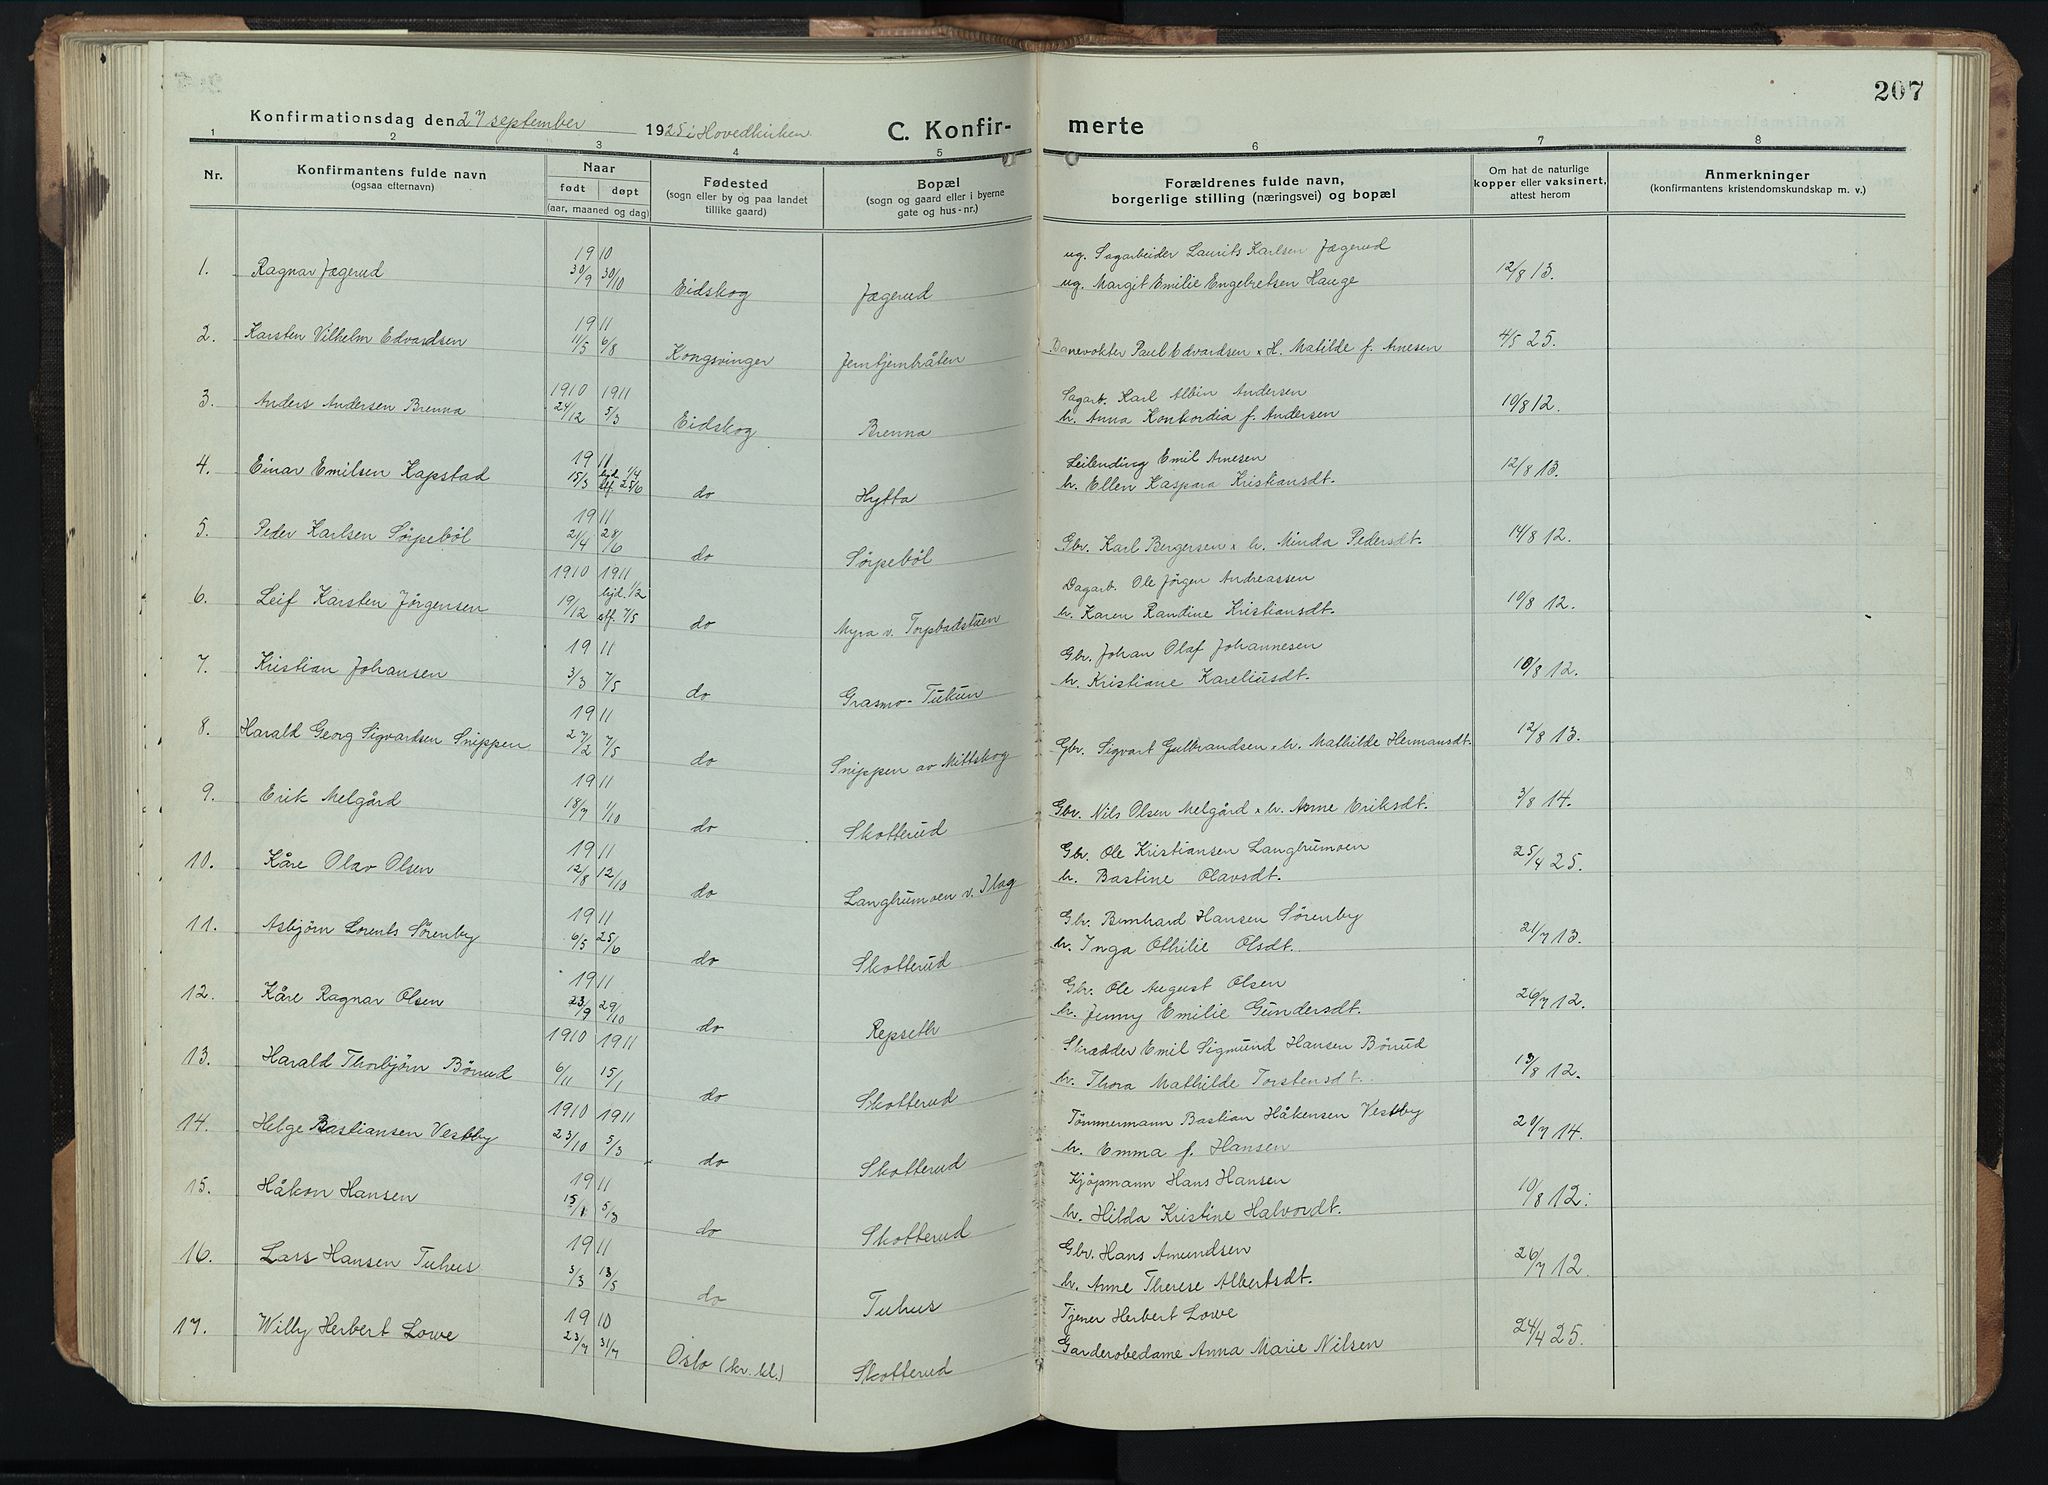 207
Konfirmationsdag den 27 september 1925 i Hovedkirken.
C. Konfirmerte
1 2 3 4 5 6 7 8
Nr.
Konfirmantens fulde navn
(ogsaa efternavn)
Naar
født døpt
(aar, maaned og dag)
Fødested
(sogn eller by og paa landet
tillike gaard)
Bopæl
(sogn og gaard eller i byerne
gate og hus-nr.)
Forældrenes fulde navn,
borgerlige stilling (næringsvei) og bopæl
Om hat de naturlige
kopper eller vaksinert,
attest herom
Anmerkninger
(konfirmantens kristendomskundskap m. v.)
1. Ragnar Jægerud 1910 30/9 30/10 Eidskog Jægerud
ug. Sagarbeider Laurits Karlsen Jægerud
ug. Margit Emilie Engebretsen Hauge 12/8 13.
2. Karsten Vilhelm Edvardsen 1911 11/5 6/8 Kongsvinger Jerntjernbråten
Banevokter Paul Edvardsen x H. Matilde f. Arnesen 4/5 25.
3. Anders Andersen Brenna 1910 1911 24/12 5/3 Eidskog Brenna
Sagarb. Karl Albin Andersen
h. Anna Konkordia f. Andersen 10/8 12.
4. Einar Emilsen Kapstad 1911 15/3 hjd. 1/4 stf. 25/6 do Hytta
Leilending Emil Arnesen
h. Ellen Kaspara Kristiansdt. 12/8 13.
5. Peder Karlsen Sørpebøl 1911 21/4 28/6 do Sørpebøl
Gbr. Karl Bergersen x h. Minda Pedersdt. 14/8 12.
6. Leif Karsten Jørgensen 1910 1911 19/12 hjd. 1/2 stf. 7/5 do Myra v. Torpbadstuen
Dagarb. Ole Jørgen Andreassen
h. Karen Randine Kristiansdt. 10/8 12.
7. Kristian Johansen 1911 3/3 7/5 do Grasmo-Tukun
Gbr. Johan Olaf Johannesen
h. Kristiane Kareliusdt. 10/8 12.
8. Harald Georg Sigvardsen Snippen 1911 27/2 7/5 do Snippen av Mittskog
Gbr. Sigvart Gulbrandsen x h. Mathilde Hermansdt. 12/8 13.
9. Erik Melgård 1911 18/7 1/10 do Skotterud
Gbr. Nils Olsen Melgård x h. Anne Eriksdt. 3/8 14.
10. Kåre Olav Olsen 1911 12/8 12/10 do Langbrumoen v. Ilag
Gbr. Ole Kristiansen Langbrumoen
h. Bastine Olavsdt. 25/4 25.
11. Asbjørn Lorents Sørenby 1911 6/5 25/6 do Skotterud
Gbr. Bernhard Hansen Sørenby
h. Inga Othilie Olsdt. 21/7 13.
12. Kåre Ragnar Olsen 1911 23/9 29/10 do Repseth
Gbr. Ole August Olsen
h. Jenny Emilie Gundersdt. 26/7 12.
13. Harald Thorbjørn Bönud 1910 1911 6/11 15/1 do Skotterud
Skrædder Emil Sigmund Hansen Bönud
h. Thora Mathilde Torstensdt. 13/8 12.
14. Helge Bastiansen Vestby 1910 1911 23/10 5/3 do Skotterud
Tömmermann Bastian Håkensen Vestby
h. Emma f. Hansen 20/7 14.
15. Håkon Hansen 1911 15/1 5/3 do Skotterud
Kjöpmann Hans Hansen
h. Hilda Kristine Halvordt. 10/8 12.
16. Lars Hansen Tuhus 1911 3/3 13/5 do Tuhus
Gbr. Hans Amundsen
h. Anne Therese Albertsdt. 26/7 12.
17. Willy Herbert Lowe 1910 23/7 31/7 Oslo (kr. kl.) Skotterud
Tjener Herbert Lowe
Garderobedame Anna Marie Nilsen 24/4 25.